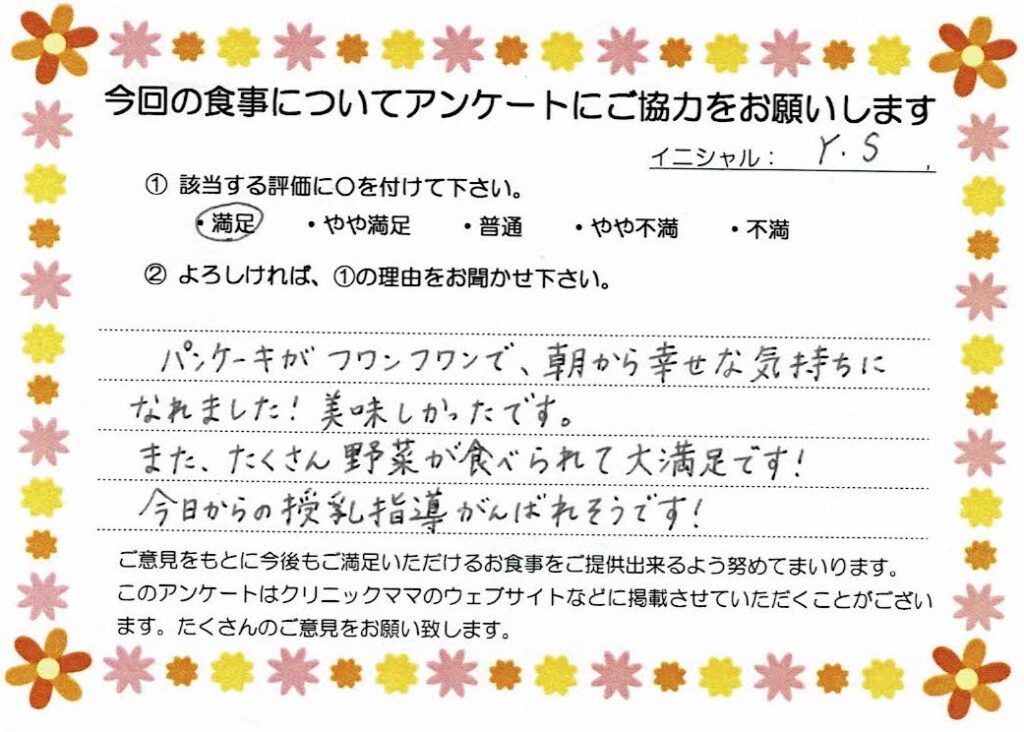 今回の食事についてアンケートにご協力をお願いします
イニシャル： Y.S
① 該当する評価に〇を付けて下さい。
・満足 ・やや満足 ・普通 ・やや不満 ・不満
② よろしければ、①の理由をお聞かせ下さい。
パンケーキがフワンフワンで、朝から幸せな気持ちに
なれました！美味しかったです。
また、たくさん野菜が食べられて大満足です！
今日からの授乳指導がんばれそうです！
ご意見をもとに今後もご満足いただけるお食事をご提供出来るよう努めてまいります。
このアンケートはクリニックママのウェブサイトなどに掲載させていただくことがござい
ます。たくさんのご意見をお願い致します。